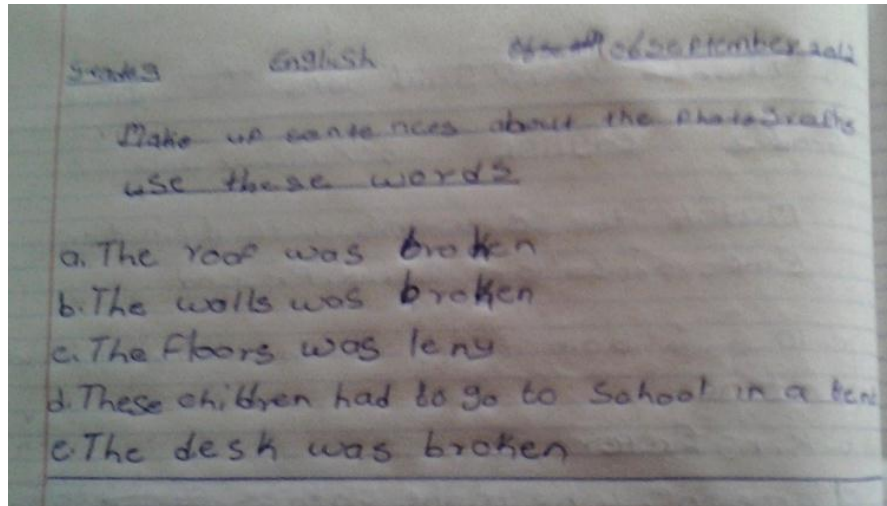 English 06 September 2012
Make up sentences about the photografhs
use these words
a. The roof was broken
b. The walls was broken
c. The Floors was leny
d. These children had to go to School in a tent
e. The desk was broken